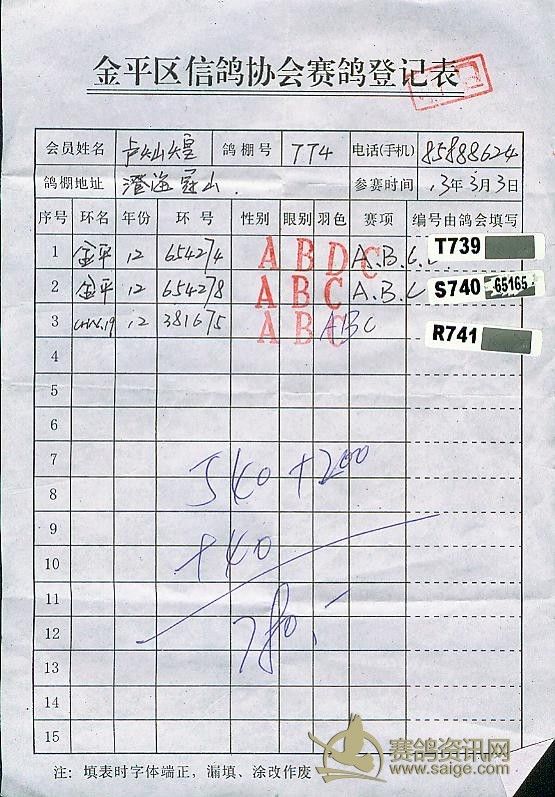 金平区信鸽协会赛鸽登记表
会员姓名 卢灿煌 鸽棚号 774 电话(手机) 85888624
鸽棚地址 澄海冠山. 参赛时间 13年3月3日
序号 环名 年份 环号 性别 眼别 羽色 赛项 编号由鸽会填写
1 金平 12 654274 A B D C A.B.C. T739
2 金平 12 654278 A B C A.B.C S740 65165
3 12 381675 A B C ABC R741
4
5
6
7
8
540+200
9
+40
10
11
12
780.-
13
14
15
注：填表时字体端正，漏填、涂改作废
赛鸽资讯网
www.saige.com